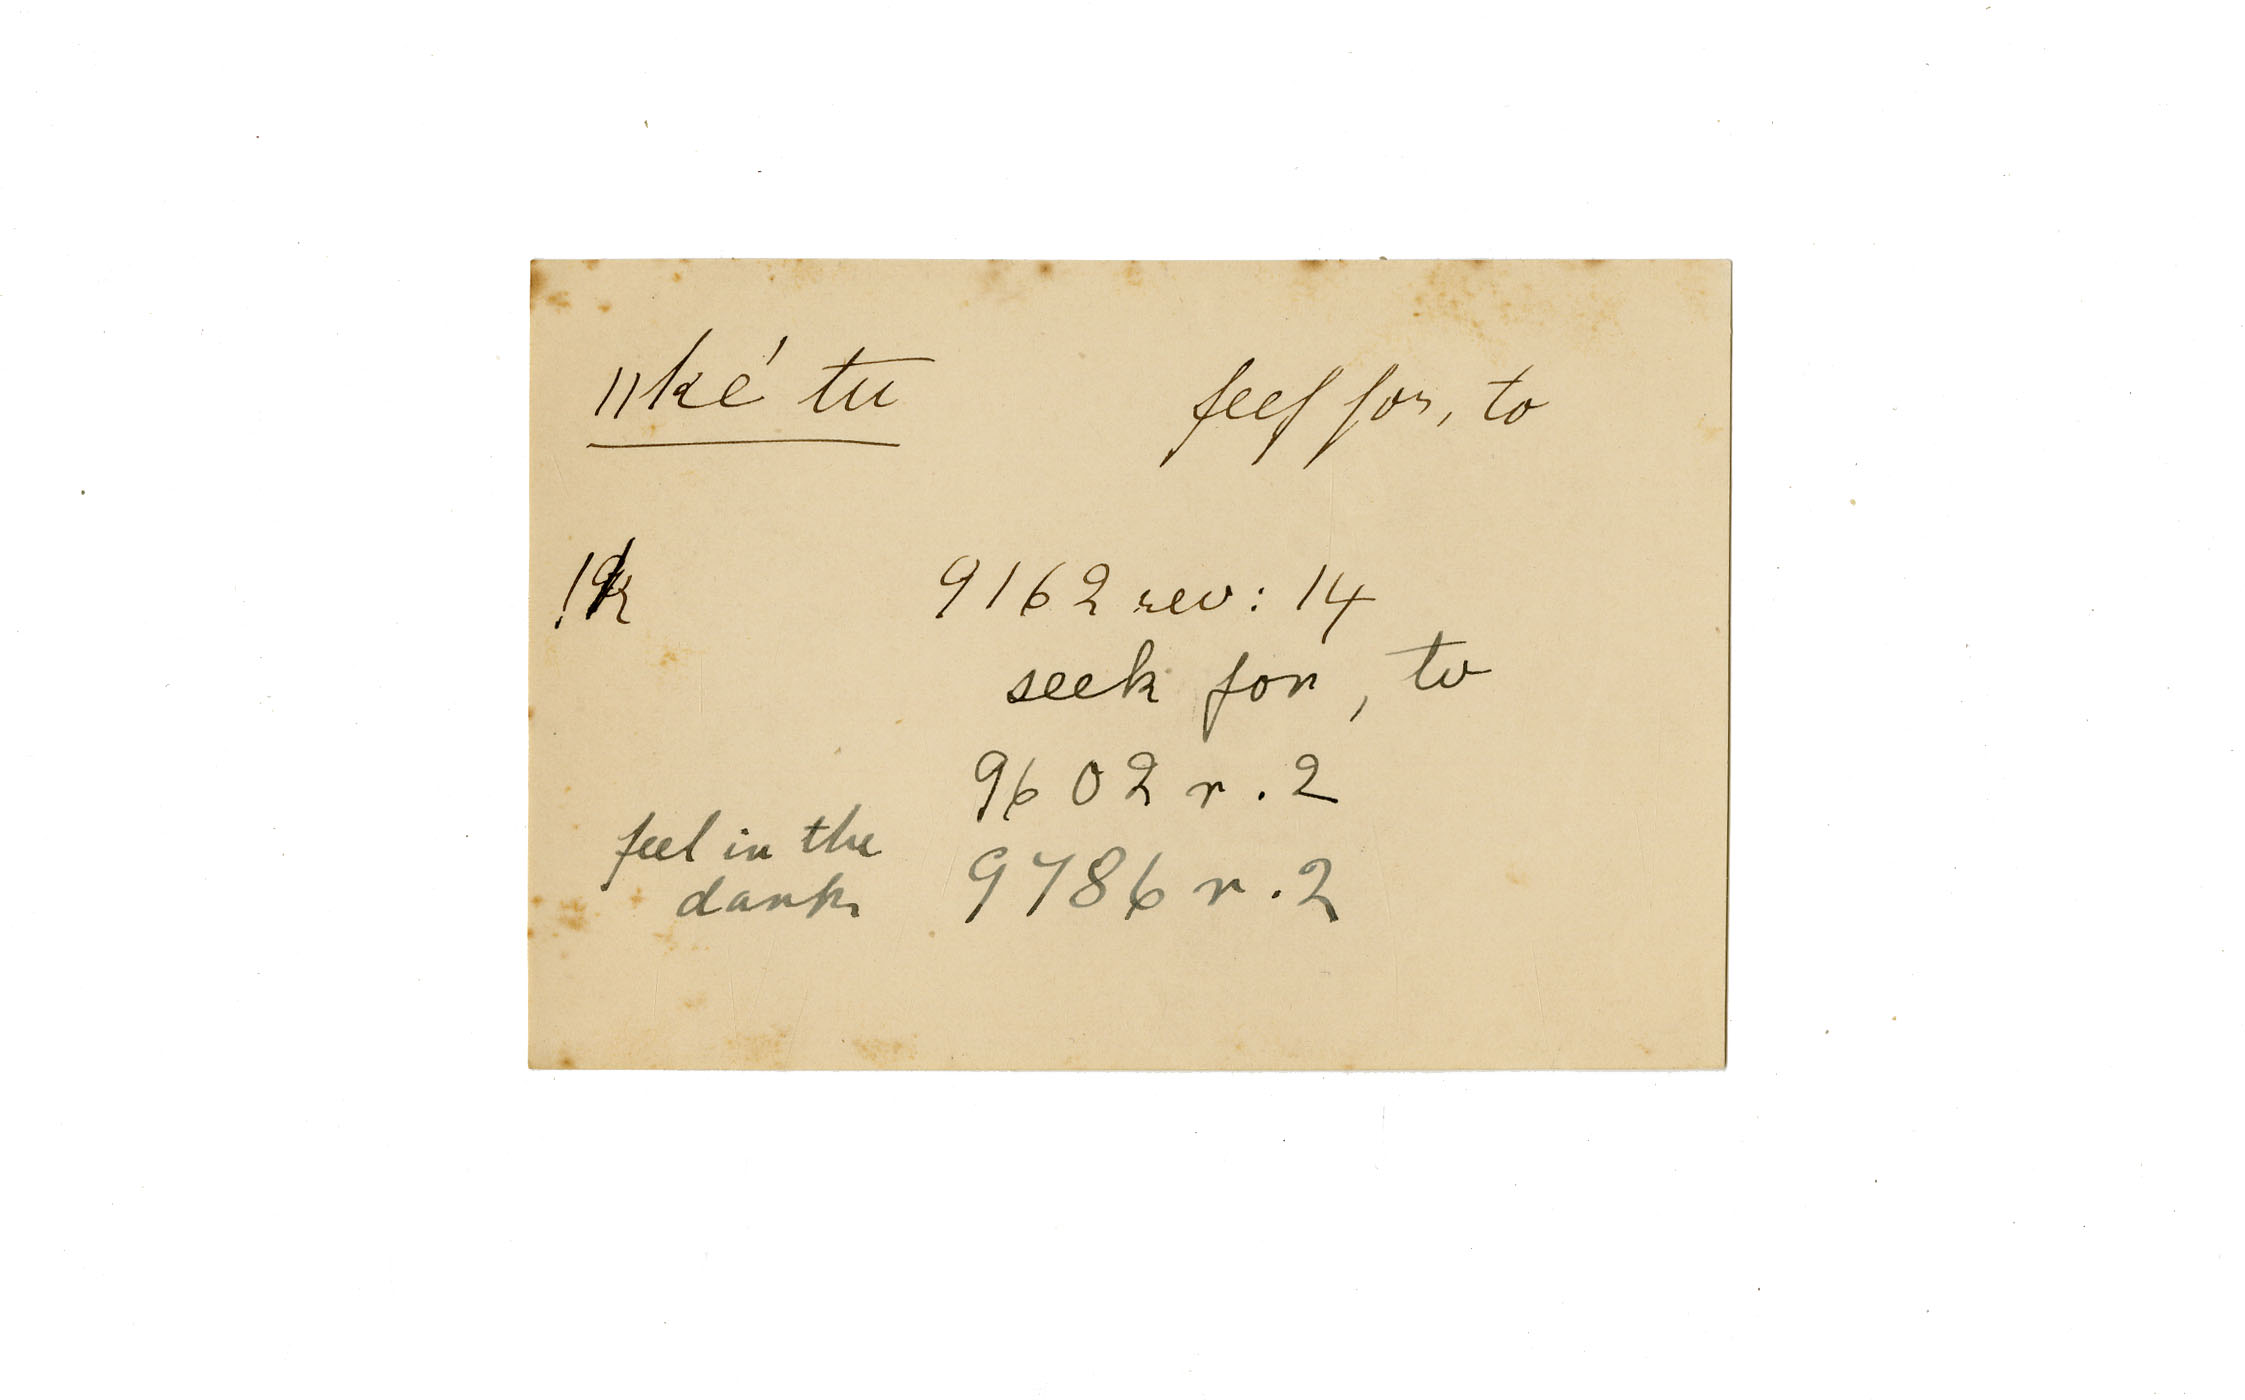 ǁké tu feel for, to
!k 9162 rev: 14
seek for, to
9602 r. 2
feel in the 9786 r. 2
dark